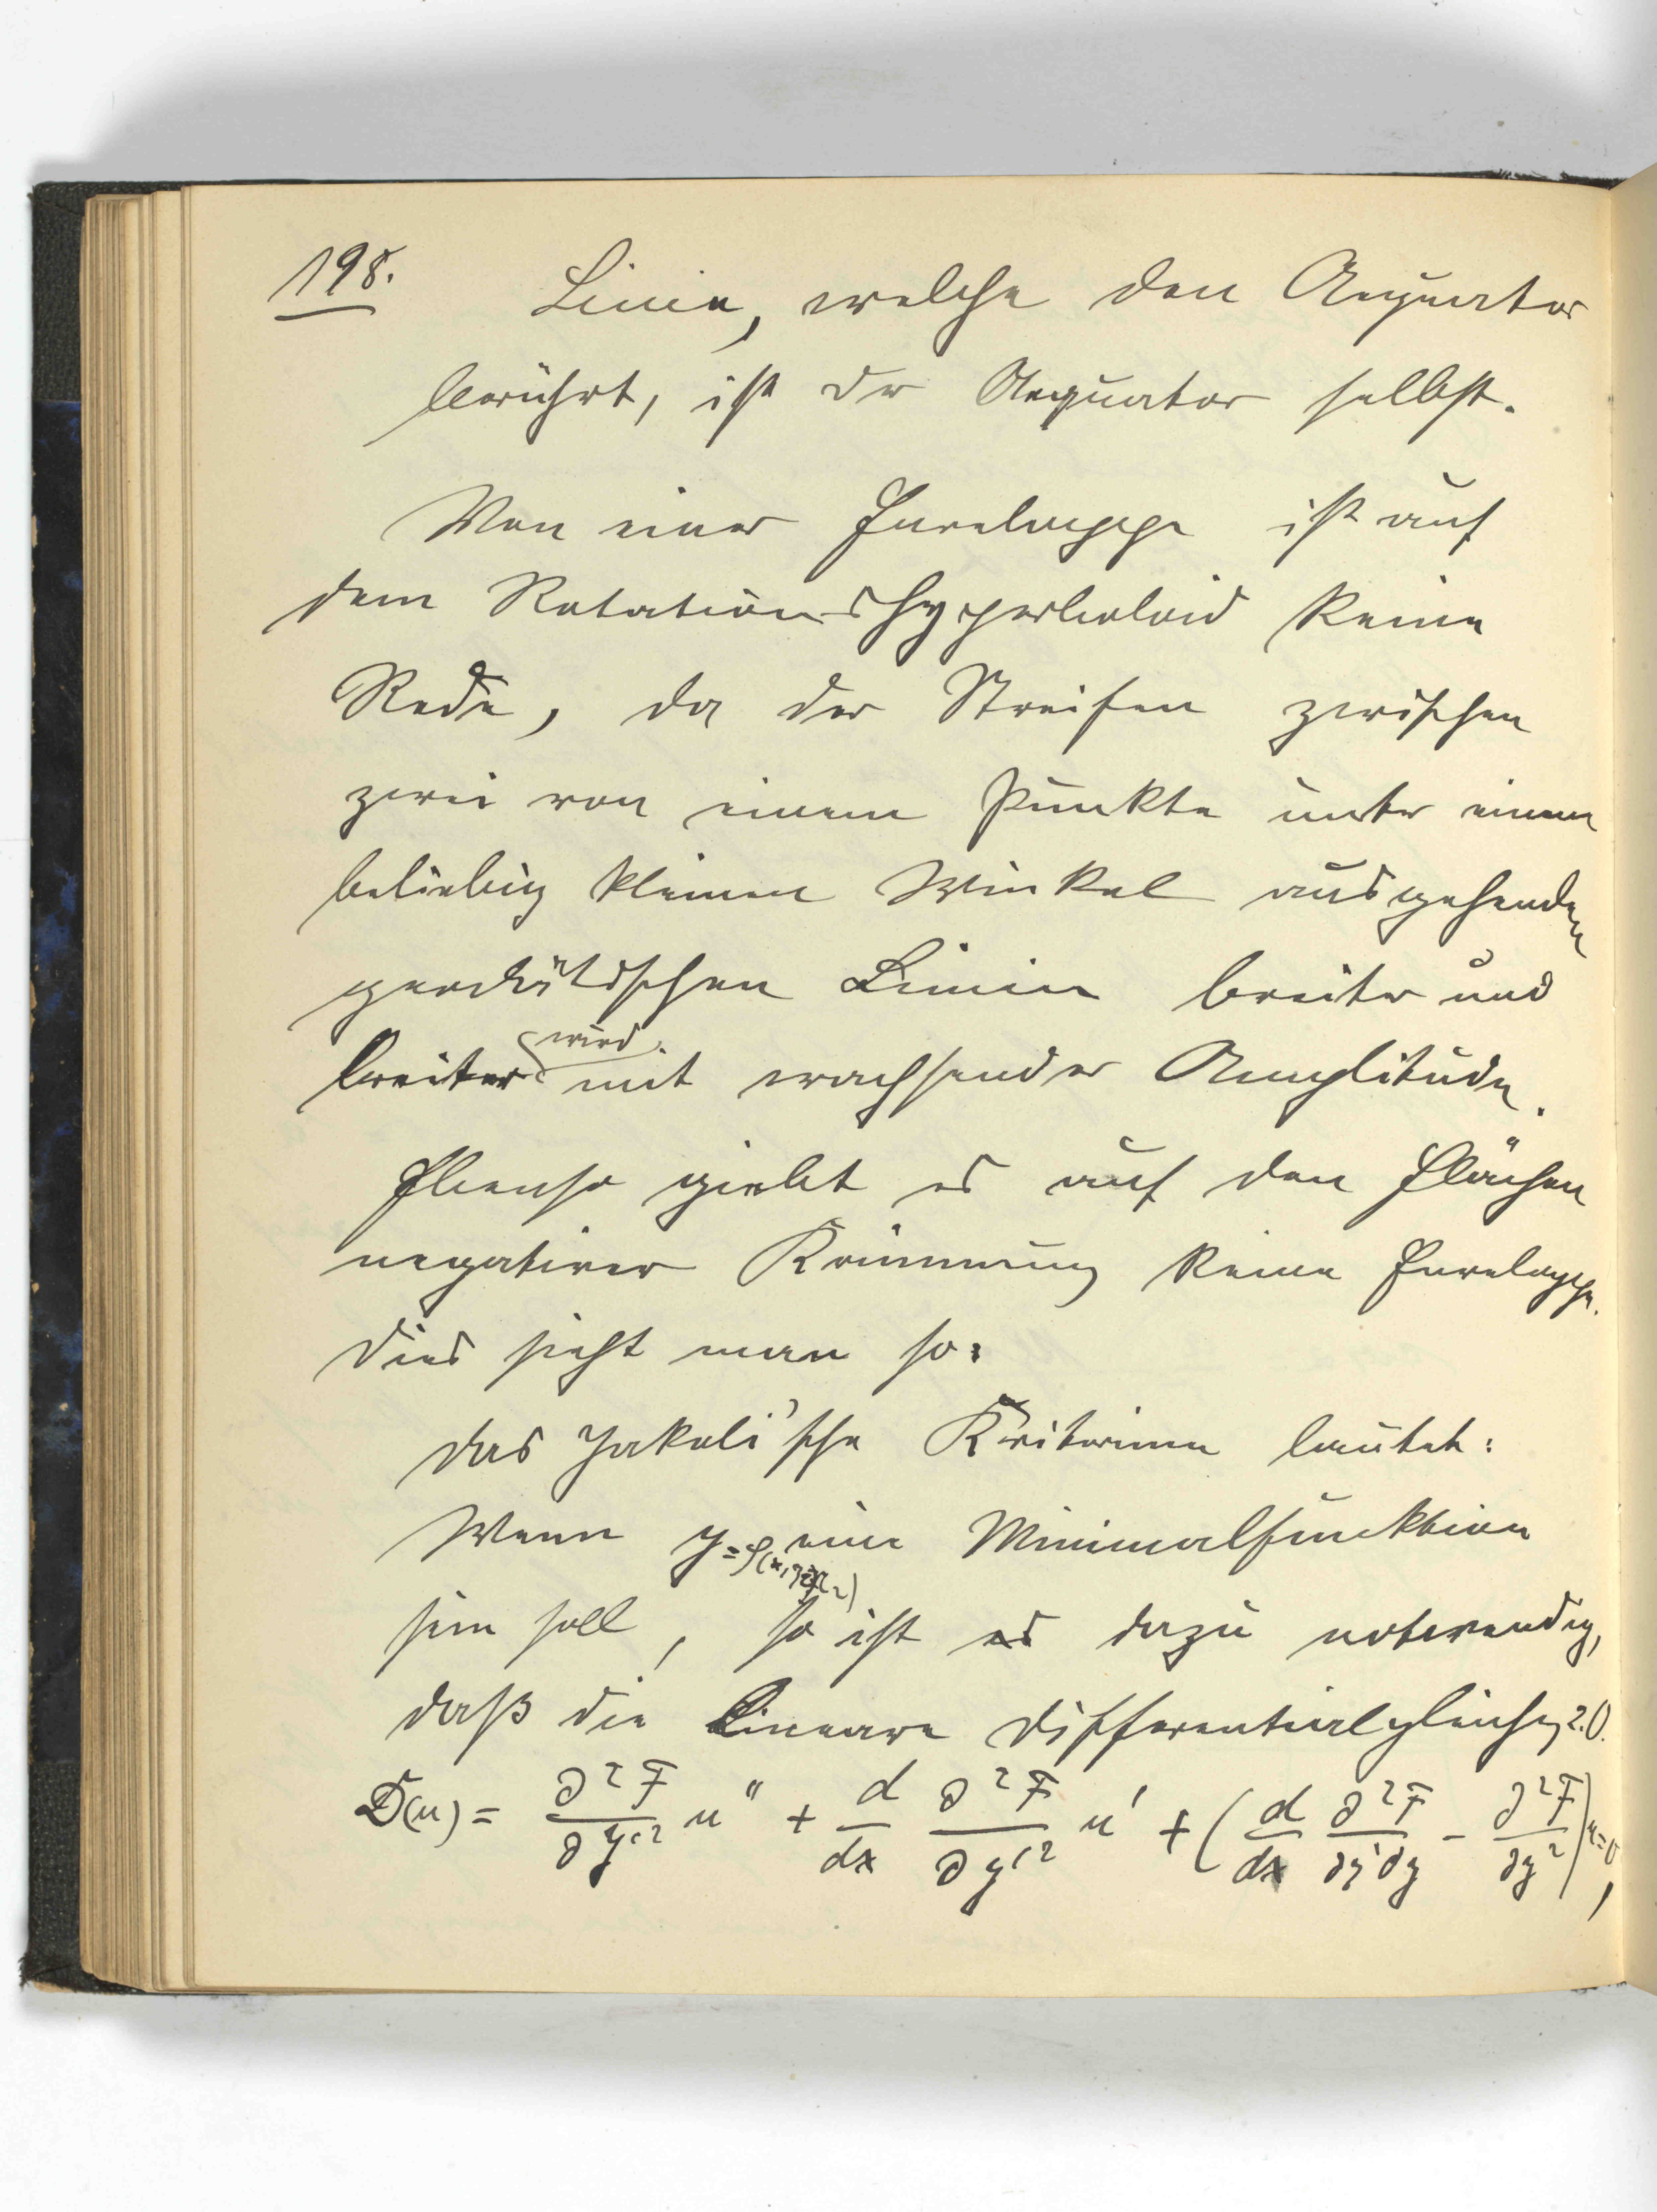 198.
Linie, welche den Aequator
berührt, ist der Aequator selbst.
Von einer Enveloppe ist auf
dem Rotationshyperboloid keine
Rede, da der Streifen zwischen
zwei von einem Punkte unter einem
beliebig kleinen Winkel ausgehenden
geodätischen Linien breiter und
breiter wird mit wachsender Amplitude.
Ebenso giebt es auf den Flächen
negativer Krümmung keine Enveloppe.
Dies sieht man so:
Das Jakobi'sche Kriterium lautet:
Wenn y=φ(x, eine Minimalfunktion
sein soll, so ist es dazu notwendig,
daß die Lineare Differentialgleichg 2.O.
D(u) = ∂²F/∂y'² u'' + d/dx ∂²F/∂y'² u' + (d/dx ∂²F/∂y'∂y - ∂²F/∂y²) u=0,